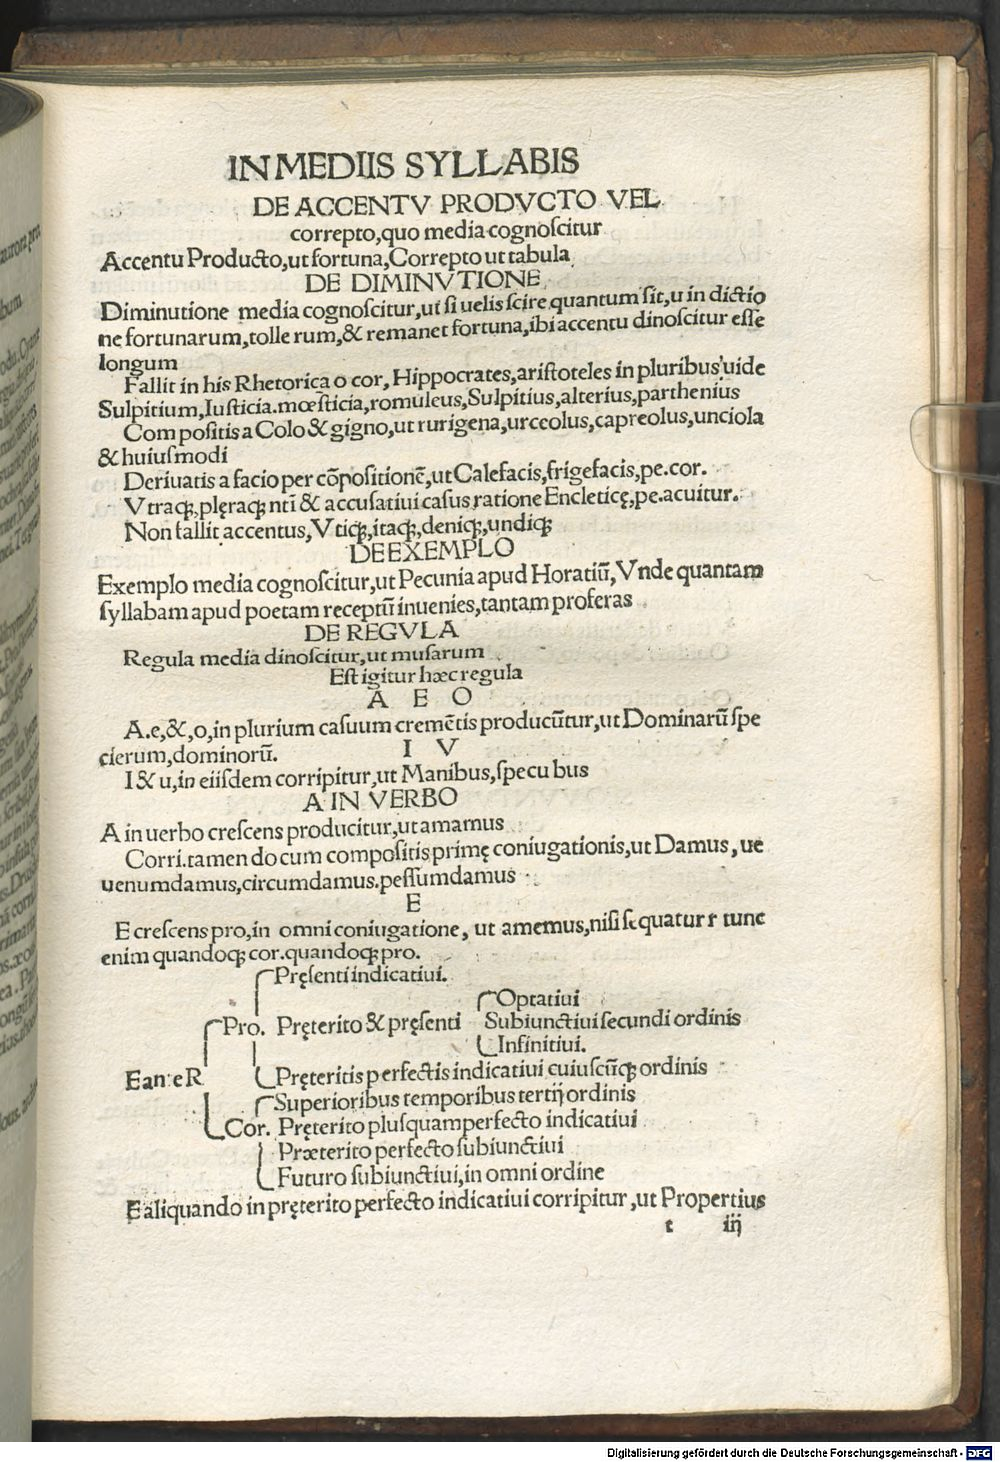 IN MEDIIS SYLLABIS
DE ACCENTV PRODVCTO VEL
correpto,quo media cognoſcitur
Accentu Producto,ut fortuna,Correpto ut tabula
DE DIMINVTIONE
Diminutione media cognoſcitur,ut ſi uelis ſcire quantum ſit,u in dictio
ne fortunarum,tolle rum,& remanet fortuna,ibi accentu dinoſcitur eſſe
longum
Fallit in his Rhetorica o cor, Hippocrates,ariſtoteles in pluribus'uide
Sulpitium,Iuſticia.mœſticia,romuleus,Sulpitius,alterius,parthenius
Com poſitis a Colo & gigno,ut rurigena,urceolus,capreolus,unciola
& huiuſmodi
Deriuatis a facio per cõpoſitionẽ,ut Calefacis,frigefacis,pe.cor.
Vtraqꝫ,plęraqꝫ nti̅ & accuſatiui caſus ratione Encleticę,pe.acuitur.
Non fallit accentus, Vtiqꝫ,itaqꝫ,deniqꝫ,undiqꝫ
DE EXEMPLO
Exemplo media cognoſcitur,ut Pecunia apud Horatiũ,Vnde quantam
ſyllabam apud poetam receptũ inuenies,tantam proferas
DE REGVLA
Regula media dinoſcitur,ut muſarum
Eſt igitur hæc regula
A E O
A.e,&,o,in plurium caſuum cremẽtis producũtur,ut Dominarũ ſpe
cierum,dominorũ. I V
I & u,in eiiſdem corripitur,ut Manibus,ſpecu bus
A IN VERBO
A in uerbo creſcens producitur,ut amamus
Corri.tamen do cum compoſitis primę coniugationis,ut Damus, ue
uenumdamus,circumdamus.peſſumdamus
E
E creſcens pro,in omni coniugatione, ut amemus,niſi ſequatur r tunc
enim quandoqꝫ cor.quandoqꝫ pro.
Pręſenti indicatiui.
Optatiui
Pro. Pręterito & pręſenti Subiunctiui ſecundi ordinis
Infinitiui.
E ante R Pręteritis perfectis indicatiui cuiuſcũqꝫ ordinis
Superioribus temporibus tertij ordinis
Cor. Pręterito pluſquamperfecto indicatiui
Præterito perfecto ſubiunctiui
Futuro ſubiunctiui,in omni ordine
E aliquando in pręterito perfecto indicatiui corripitur,ut Propertius
t iij
Digitalisierung gefördert durch die Deutsche Forschungsgemeinschaft - DFG